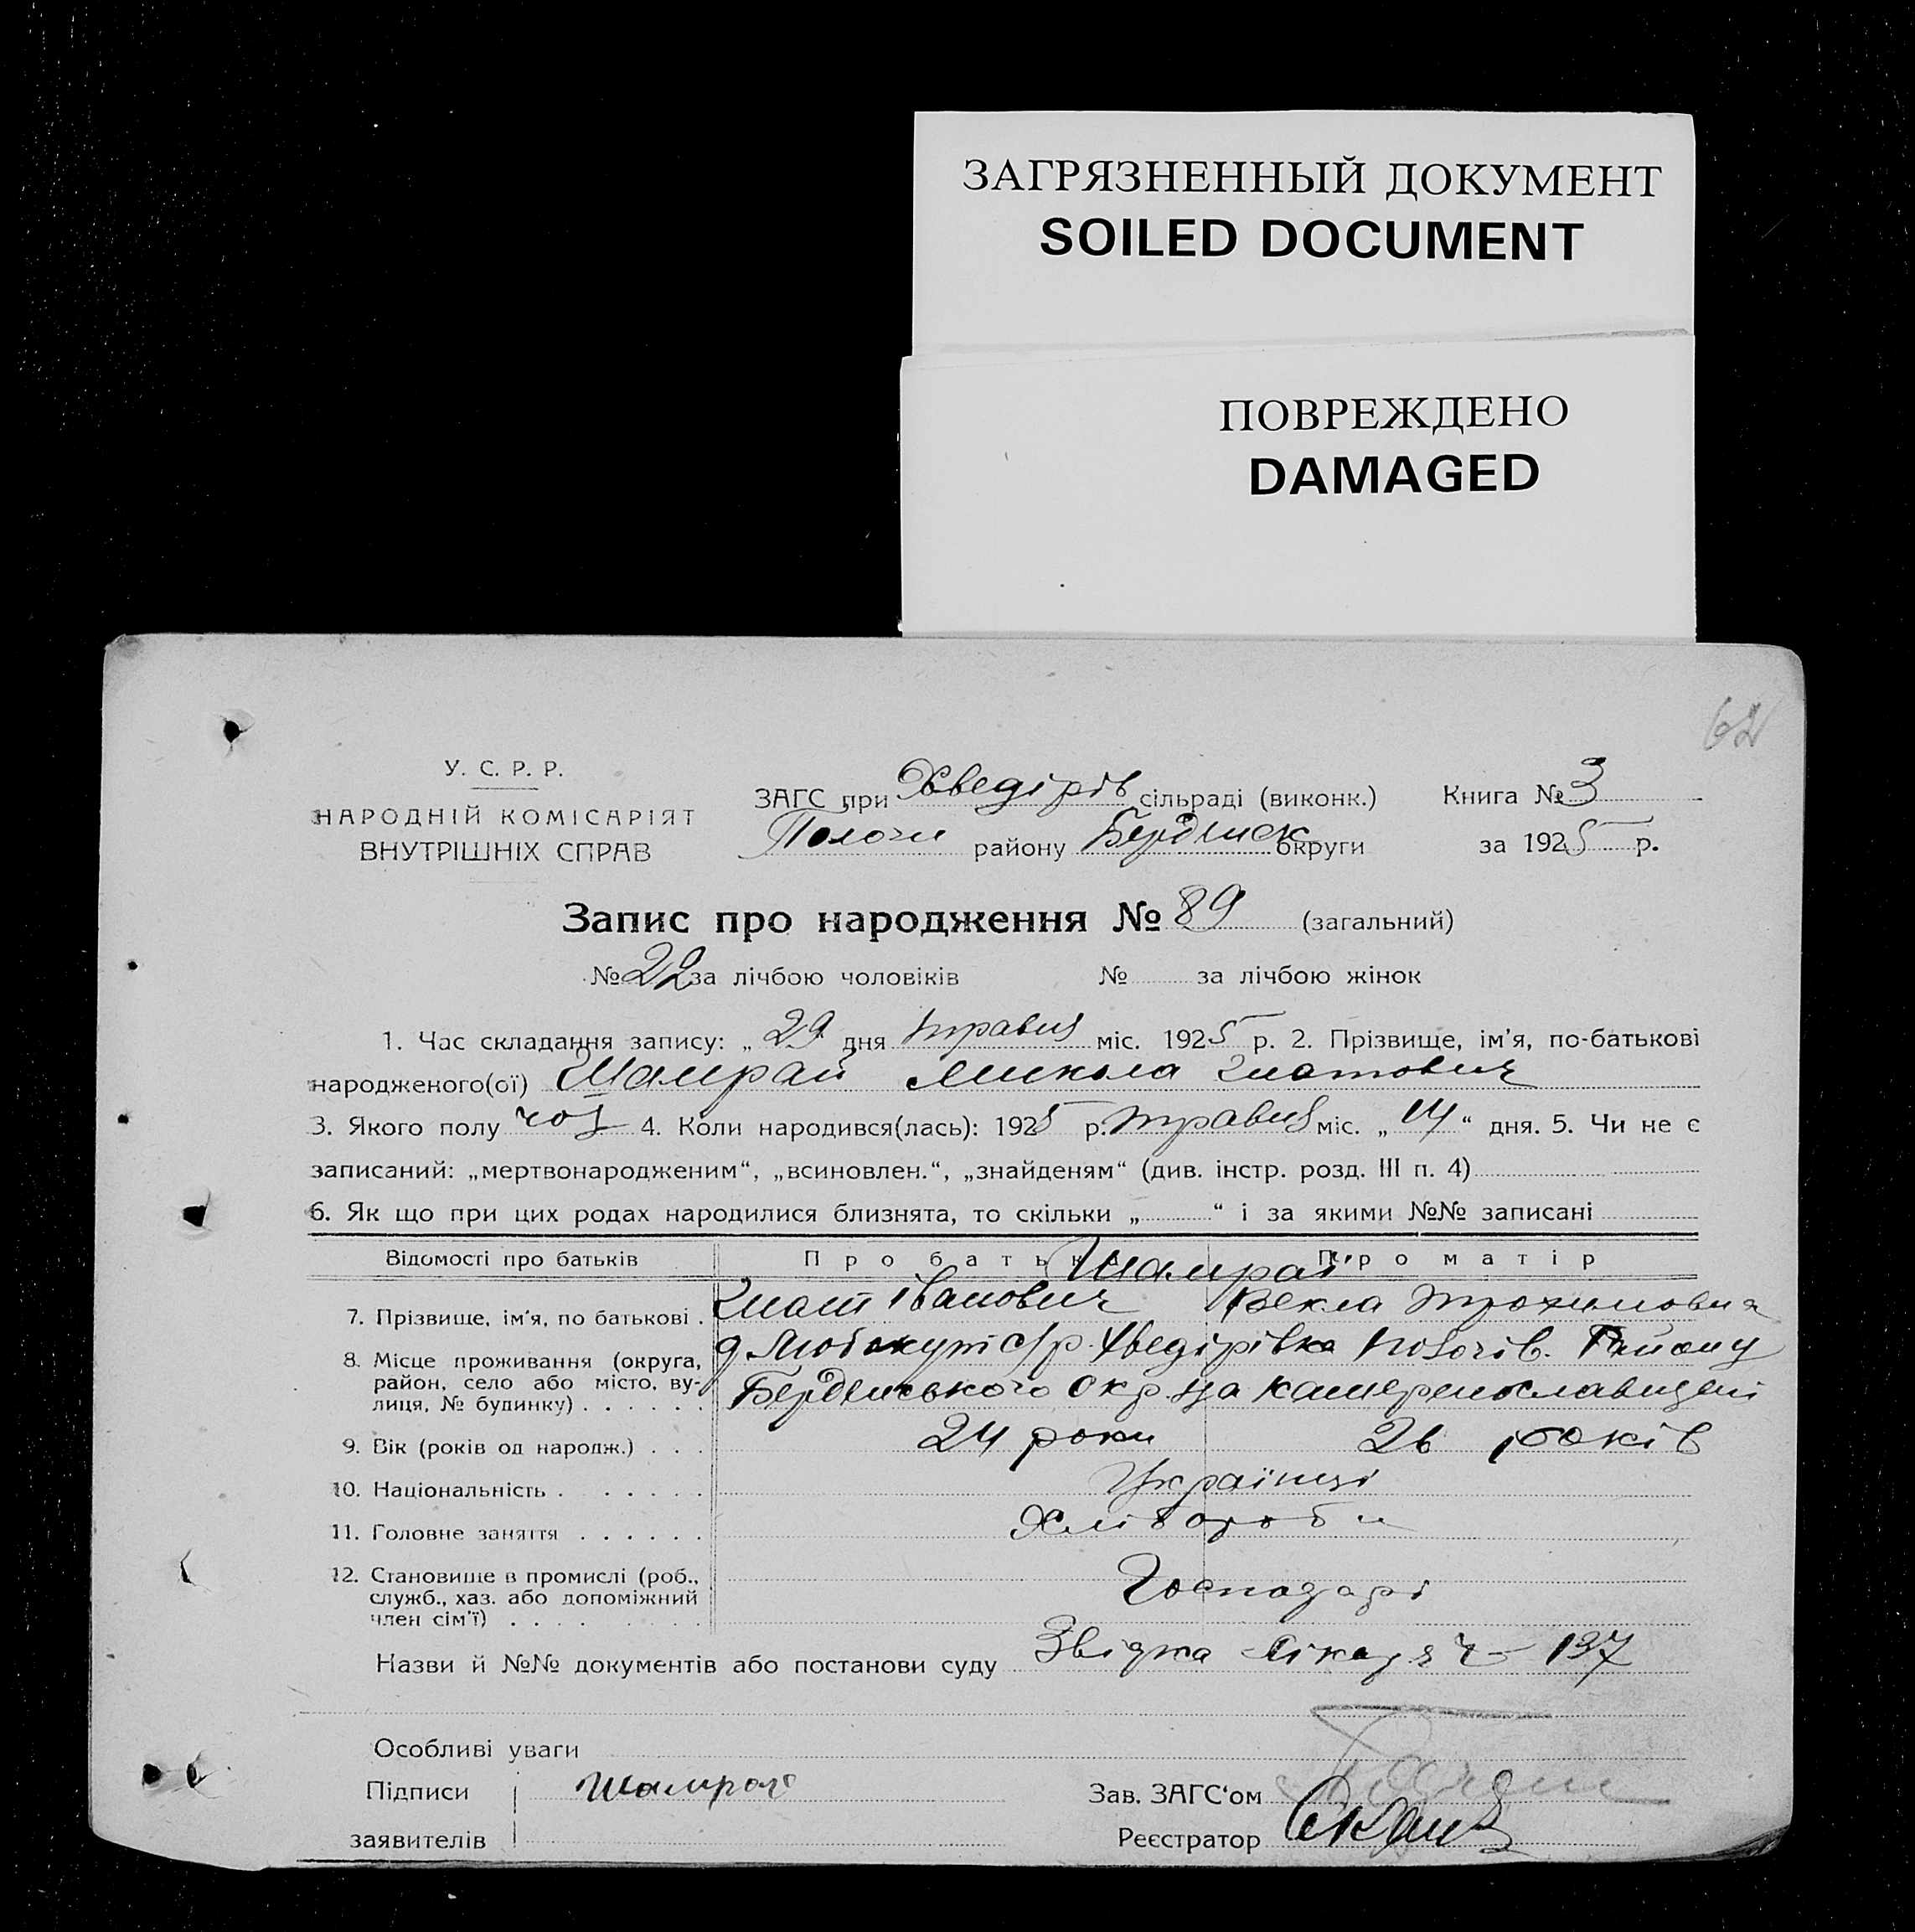 ЗАГРЯЗНЕННЫЙ ДОКУМЕНТ
SOILED DOCUMENT
ПОВРЕЖДЕНО
DAMAGED
62
У. С. Р. Р.
НАРОДНІЙ КОМІСАРІЯТ
ВНУТРІШНІХ СПРАВ
ЗАГС при Хведірів сільраді (виконк.)
Пологи району Бердянск округи
Книга № 3
за 1925 р.
Запис про народження № 89 (загальний)
№ 22 за лічбою чоловіків № за лічбою жінок
1. Час складання запису: „ 29 дня травня міс. 1925 р. 2. Прізвище, ім'я, по-батькові
народженого(ої) Шамрай Микола Гнатович
3. Якого полу чол 4. Коли народився(лась): 1925 р. травня міс. „ 14 “ дня. 5. Чи не є
записаний: „мертвонародженим“, „всиновлен.“, „знайденям“ (див. інстр. розд. III п. 4)
6. Як що при цих родах народилися близнята, то скільки „ “ і за якими №№ записані
Відомості про батьків Про батька Про матір
Шамраї
7. Прізвище, ім'я, по батькові . Гнат Іванович Векла Трохимовна
8. Місце проживання (округа, район, село або місто, вулиця, № будинку) . . . . . .
с/р. Хведірівка Пологів. Району
Бердянського Окр. на Катеринославщені
9. Вік (років од народж.) . . . 24 роки 26 років
10. Національність . . . . . . Українці
11. Головне заняття . . . . . . Хлібороби
12. Становище в промислі (роб., служб., хаз. або допоміжний член сім'ї) . . . . Господарі
Назви й №№ документів або постанови суду Звідка Лікаря ч – 137
Особливі уваги
Підписи Шамрай
заявителів
Зав. ЗАГС'ом
Реєстратор